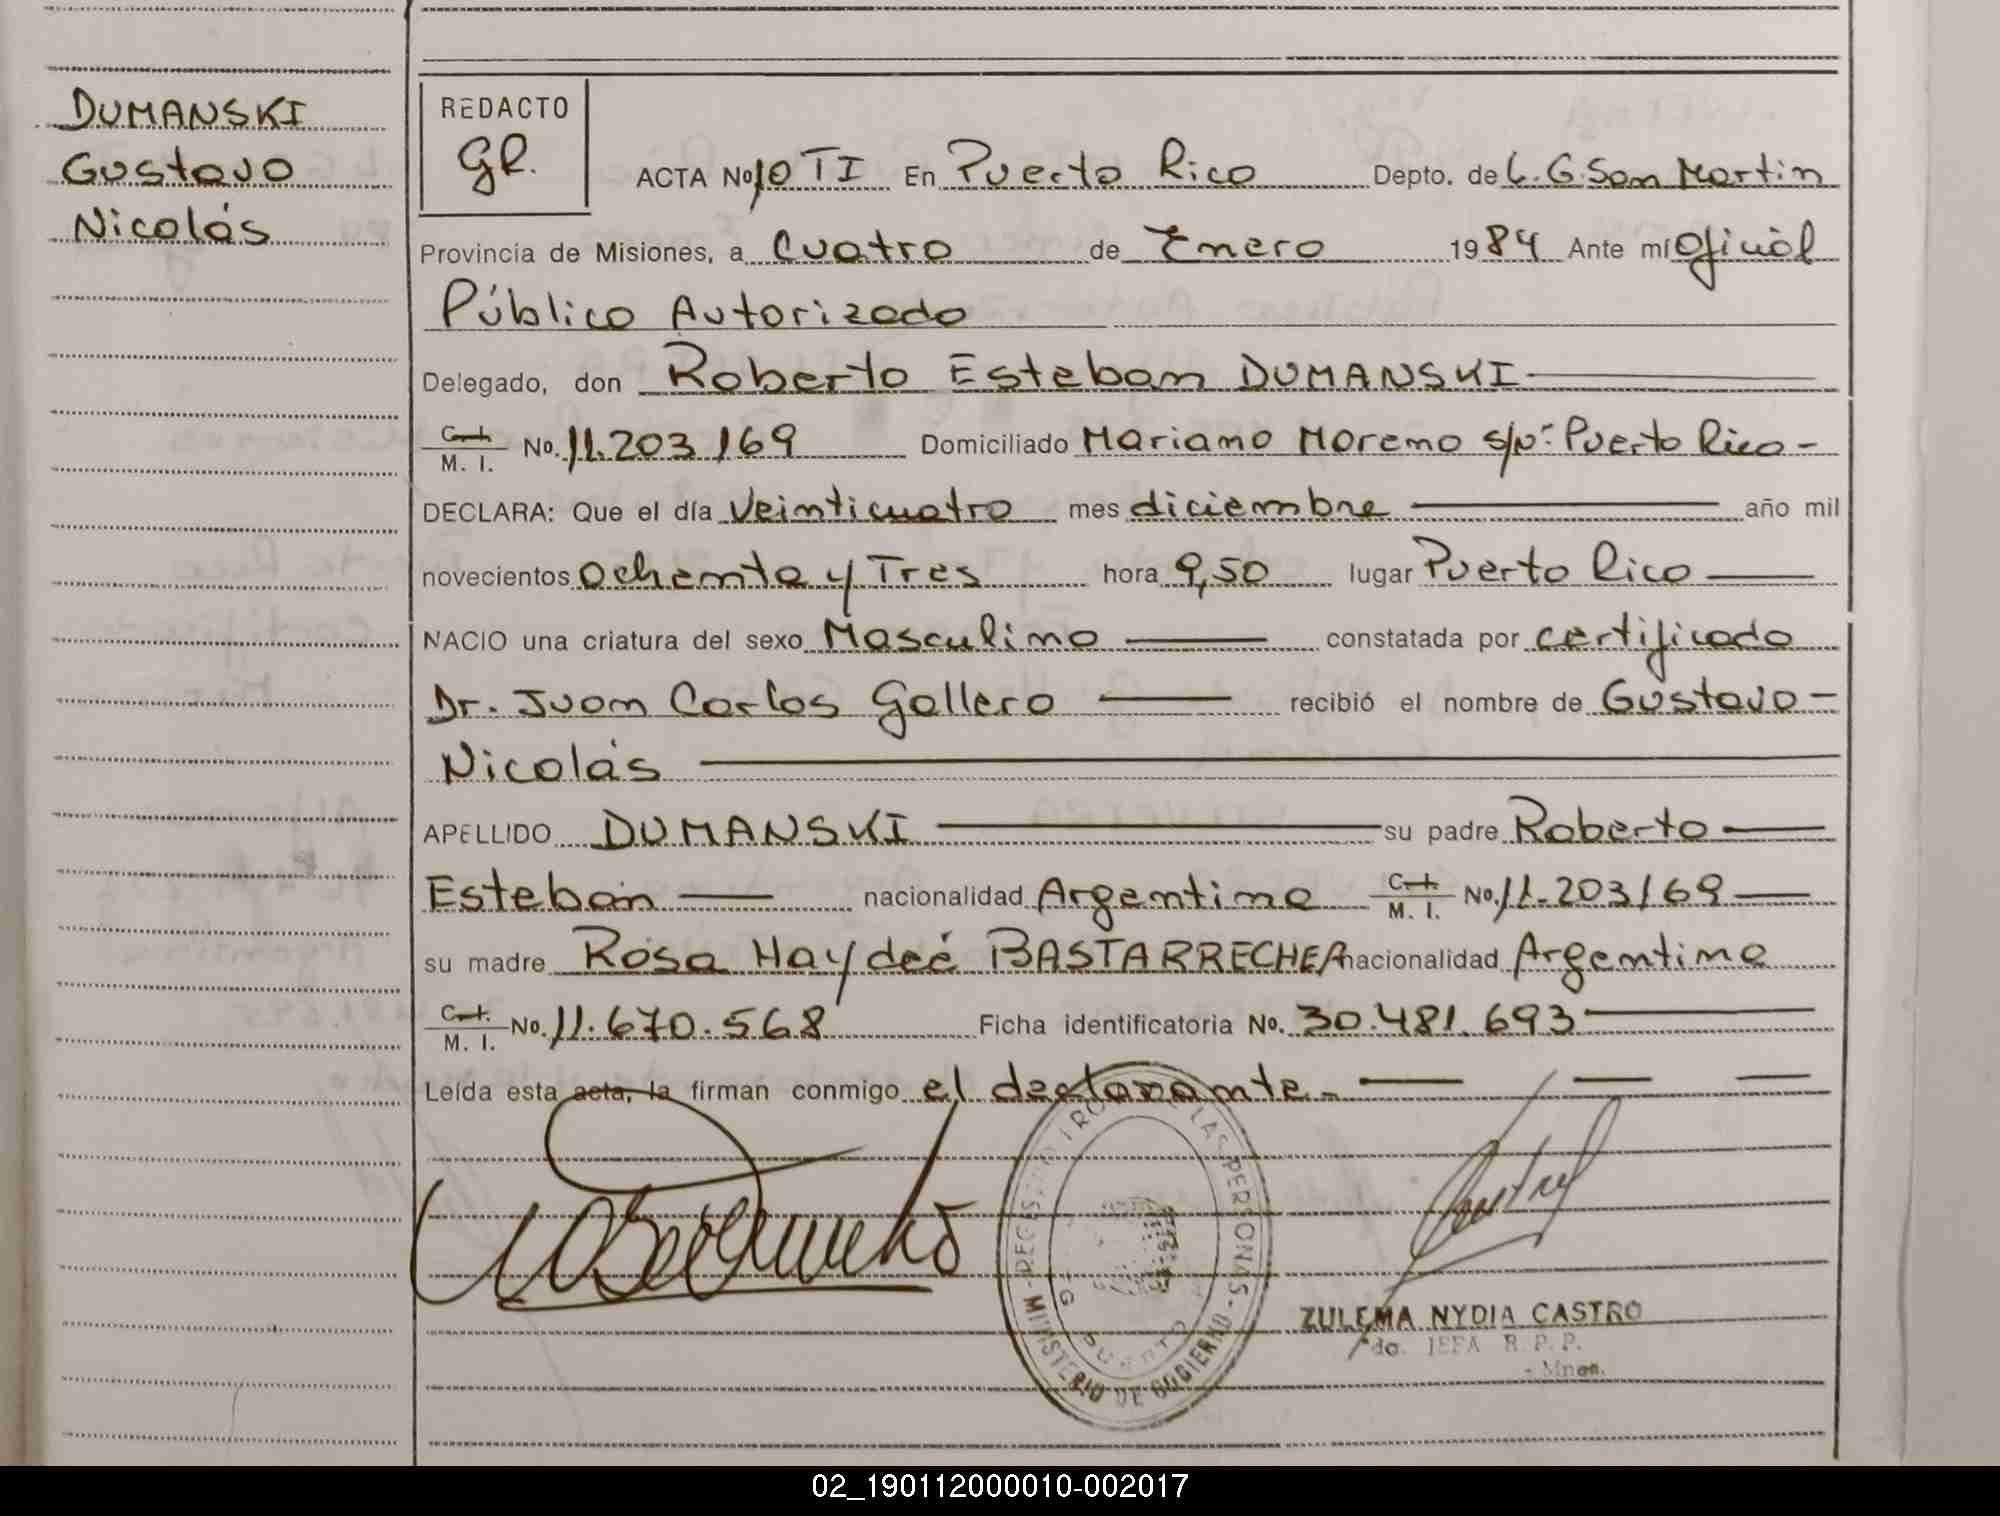 DUMANSKI
Gustavo
Nicolás
REDACTO
GR.
ACTA No 10 TI En Puerto Rico Depto. de L. G. San Martin
Provincia de Misiones, a Cuatro de Enero 1984 Ante mí Oficial
Público Autorizado
Delegado, don Roberto Esteban DUMANSKI
C. I. / M. I. No. 11.203169 Domiciliado Mariano Moreno s/nº: Puerto Rico -
DECLARA: Que el día Veinticuatro mes diciembre año mil
novecientos Ochenta y Tres hora 9,50 lugar Puerto Rico
NACIO una criatura del sexo Masculino constatada por certificado
Dr. Juan Carlos Gallero recibió el nombre de Gustavo -
Nicolás
APELLIDO DUMANSKI su padre Roberto
Esteban nacionalidad Argentina C. I. / M. I. No. 11.203169
su madre Rosa Haydeé BASTARRECHEA nacionalidad Argentina
C. I. / M. I. No. 11.670.568 Ficha identificatoria No. 30.481.693
Leída esta acta, la firman conmigo el declarante.-
LAS PERSONAS - MINISTERIO DE GOBIERNO
ZULEMA NYDIA CASTRO
JEFA R. P. P.
Mnes.
02_190112000010-002017